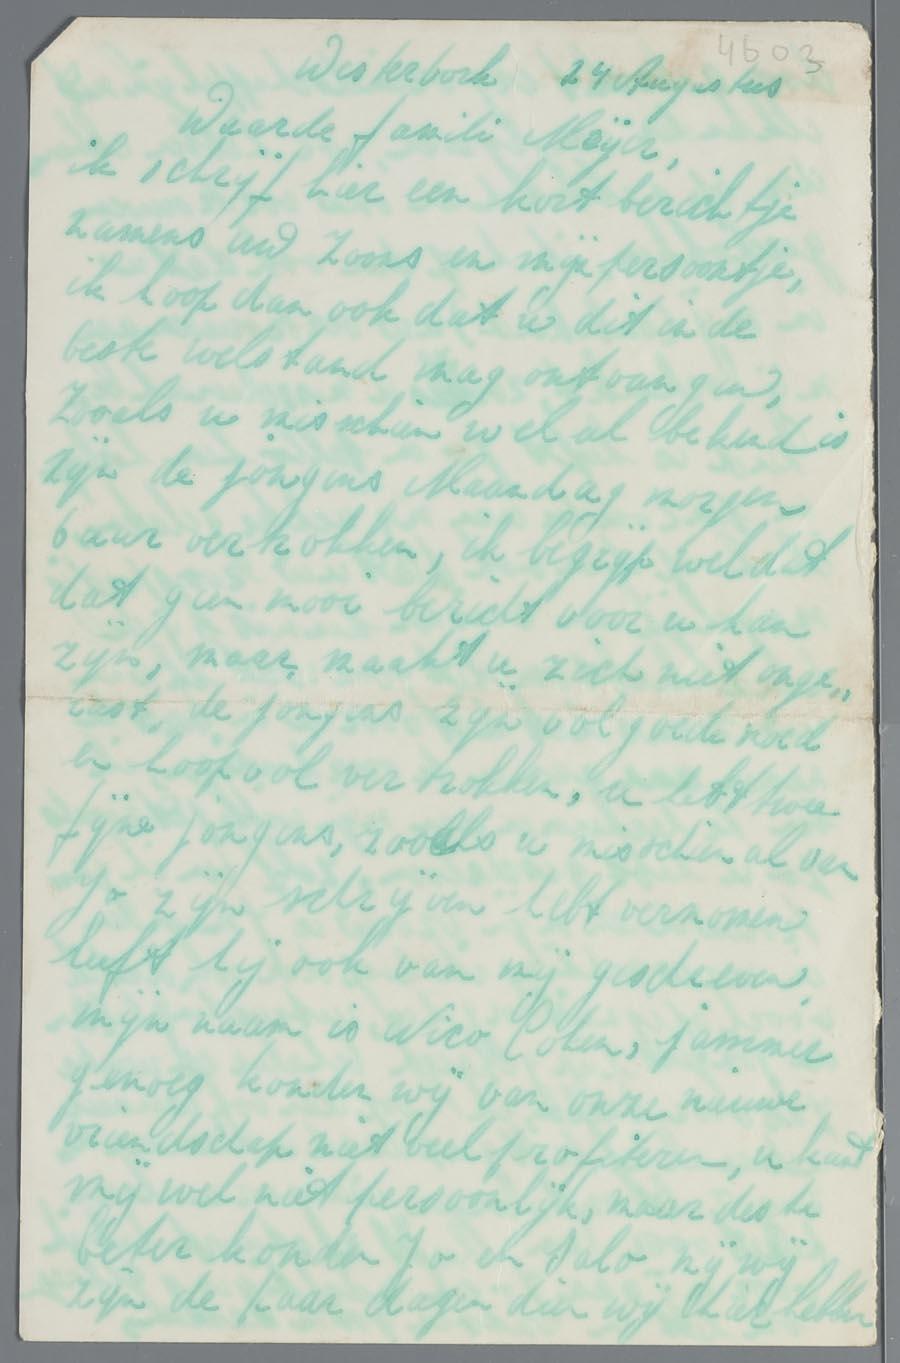 4603
Westerbork 24 Augustus
Waarde familie Meijer,
ik schrijf hier een kort berichtje
namens uw zoons en mijn persoontje,
ik hoop dan ook dat u dit in de
beste welstand mag ontvangen,
Zooals u misschien wel al bekend is
zijn de jongens Maandag morgen
6 uur vertrokken, ik begrijp wel dat
dat geen mooi bericht voor u kan
zijn, maar maakt u zich niet onge„
rust, de jongens zijn vol goede moed
en hoopvol vertrokken, u hebt twee
fijne jongens, zooals u misschien al van
Jo zijn schrijven hebt vernomen
heeft hij ook van mij geschreven,
mijn naam is Nico Cohen, jammer
genoeg konden wij van onze nieuwe
vriendschap niet veel profiteren, u kent
mij wel niet persoonlijk, maar des te
beter konden Jo en Salo mij wij
zijn de paar dagen dien wij elkaar hebben